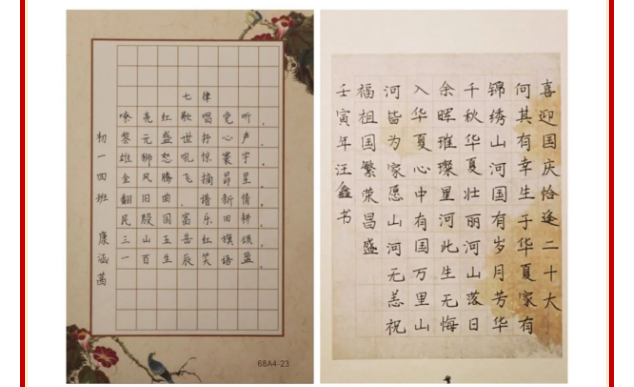 七律
嘹亮红歌唱党听，
黎元盛世抒心声
雄狮怒吼惊寰宇
金凤腾飞摘昴星。
翻旧曲，谱新情
民殷国富乐田耕，
三山五岳红旗颂
一百生辰笑语盈。
初一四班 康涵菡
68A4-23
喜迎国庆恰逢二十大
何其有幸生于华夏家有
锦绣山河国有岁月芳华
千秋华夏壮丽河山落日
余晖璀璨星河此生无悔
入华夏心中有国万里山
河皆为家愿山河无恙祝
福祖国繁荣昌盛
壬寅年汪鑫书